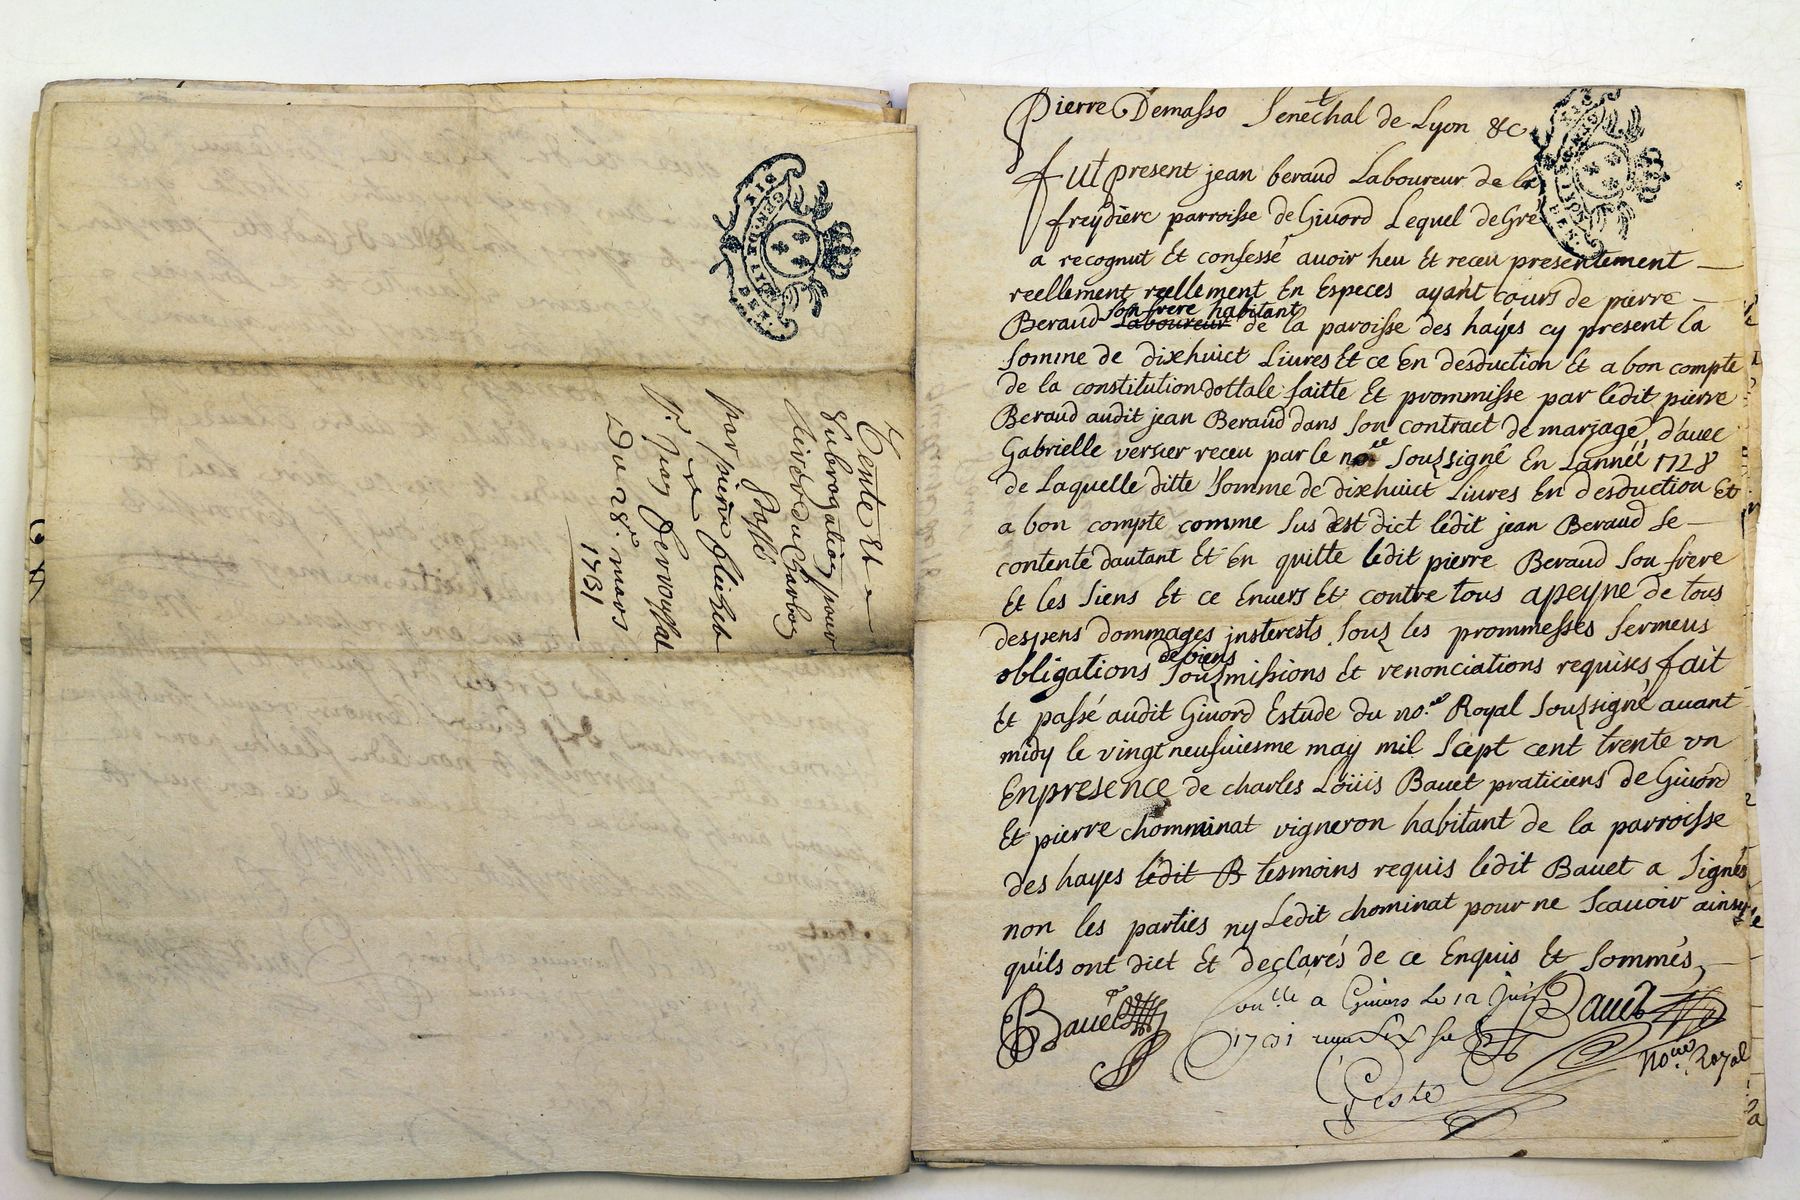 Vente Et
Subrogation pour
Sieur du Charbon
Passé
par pierre fleichet
a
Sr. Jean
Du 28e. mars
1731
GEN. DE LYON
Pierre Demasso Senechal de Lyon &c
fut present jean beraud Laboureur de la
freydiere parroisse de Giuord Lequel de Gré
a recognut Et confessé auoir heu Et receu presentement
reellement reellement En Especes ayant cours de pierre
son frere habitant
Beraud Laboureur de la paroisse des hayes cy present la
somme de dixhuict Liures Et ce En desduction Et a bon compte
de la constitution dottale faitte Et prommisse par ledit pierre
Beraud audit jean Beraud dans son contract de marjage d'auec
Gabrielle versier receu par le nore soussigné En Lanneé 1728
de Laquelle ditte somme de dixhuict Liures En desduction Et
a bon compte comme sus Est dict ledit jean Beraud se
contente dautant Et En quitte ledit pierre Beraud son frere
Et les siens Et ce Enuers Et contre tous apeyne de tous
despens dommages jnsterests sous les prommesses sermens
de biens
obligations soubmissions Et renonciations requises fait
Et passé audit Giuord Estude du no.re Royal soussigné auant
midy le vingt neufuiesme may mil sept cent trente vn
En presence de charles Loüis Bauet praticiens de Giuord
Et pierre chomminat vigneron habitant de la parroisse
des hayes ledit B tesmoins requis ledit Bauet a signés
non les parties ny Ledit chominat pour ne scauoir ainsy
qu'ils ont dict Et declarés de ce Enquis Et sommés
Bauet
Conllé a Giuors le 12 Juin Bauet
1731
no.re Royal